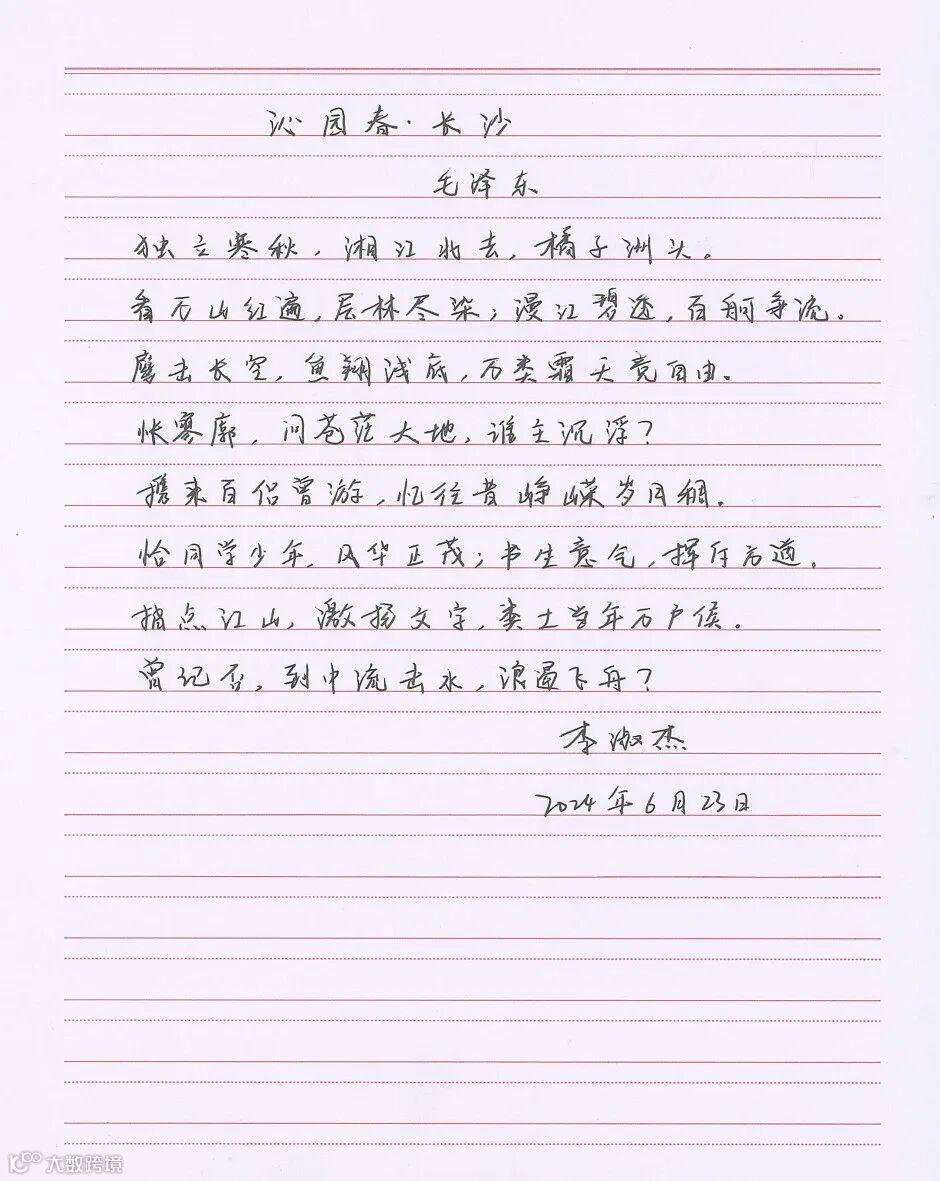 沁园春·长沙
毛泽东
独立寒秋，湘江北去，橘子洲头。
看万山红遍，层林尽染；漫江碧透，百舸争流。
鹰击长空，鱼翔浅底，万类霜天竞自由。
怅寥廓，问苍茫大地，谁主沉浮？
携来百侣曾游，忆往昔峥嵘岁月稠。
恰同学少年，风华正茂；书生意气，挥斥方遒。
指点江山，激扬文字，粪土当年万户侯。
曾记否，到中流击水，浪遏飞舟？
李淑杰
2024年6月23日
大数跨境